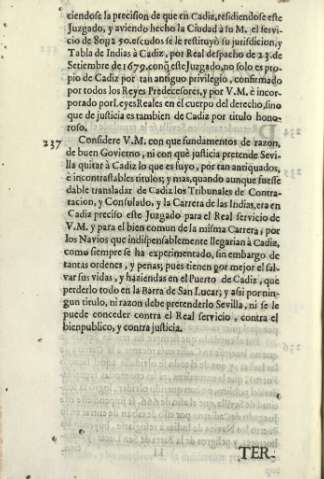 ciendose la precision de que en Cadiz, residiendose este
Juzgado, y aviendo hecho la Ciudad à su M. el servi-
cio de 80y250. escudos se le restituyò su jurisdicion, y
Tabla de Indias à Cadiz, por Real despacho de 23. de
Setiembre de 1679. conq̃ este Juzgado, no solo es pro-
pio de Cadiz por tan antiguo privilegio, confirmado
por todos los Reyes Predecesores, y por V.M. è incor-
porado por Leyes Reales en el cuerpo del derecho, sino
que de justicia es tambien de Cadiz por titulo hono-
roso.
237 Considere V.M. con que fundamentos de razon,
de buen Govierno, ni con què justicia pretende Sevi-
lla quitar à Cadiz lo que es suyo, por tan antiquados,
è incontrastables titulos; y mas, quando aunque fuesse
dable transladar de Cadiz los Tribunales de Contra-
tacion, y Consulado, y la Carrera de las Indias, era en
Cadiz preciso este Juzgado para el Real servicio de
V.M. y para el bien comun de la misma Carrera, por
los Navios que indispensablemente llegarian à Cadiz,
como siempre se ha experimentado, sin embargo de
tantas ordenes, y penas; pues tienen por mejor el sal-
var sus vidas, y haziendas en el Puerto de Cadiz, que
perderlo todo en la Barra de San Lucar; y assi por nin-
gun titulo, ni razon debe pretenderlo Sevilla, ni se le
puede conceder contra el Real servicio, contra el
bien publico, y contra justicia.
TER-